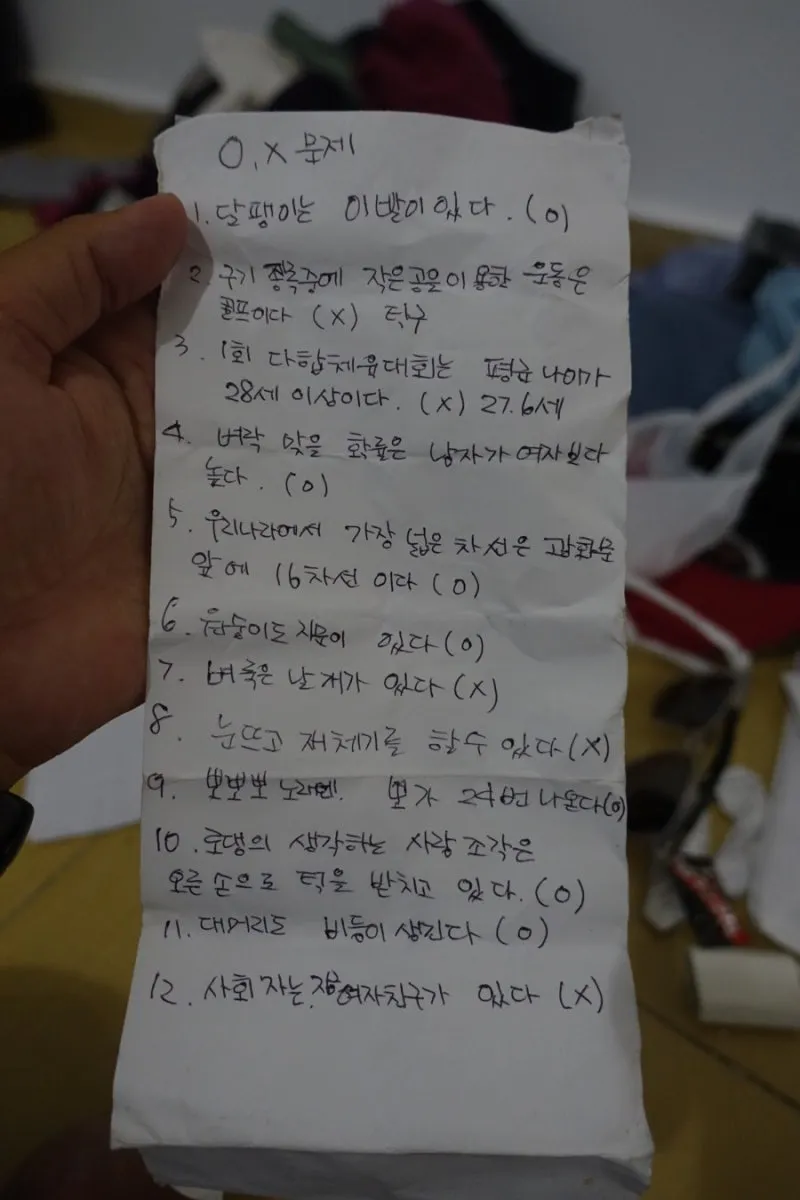 O, X 문제
1. 달팽이는 이빨이 있다. (O)
2. 구기 종목중에 작은공을이용한 운동은
골프이다 (X) 탁구
3. 1회 다합체육대회는 평균나이가
28세 이상이다. (X) 27.6세
4. 벼락 맞을 확률은 남자가 여자보다
높다. (O)
5. 우리나라에서 가장 넓은 차선은 광화문
앞에 16차선 이다 (O)
6. 원숭이도 지문이 있다 (O)
7. 벼룩은 날개가 있다 (X)
8. 눈뜨고 재채기를 할수 있다 (X)
9. 뽀뽀뽀 노래엔 뽀가 24번 나온다 (O)
10. 로댕의 생각하는 사람 조각은
오른손으로 턱을 받치고 있다. (O)
11. 대머리도 비듬이 생긴다 (O)
12. 사회자는 여자친구가 있다 (X)